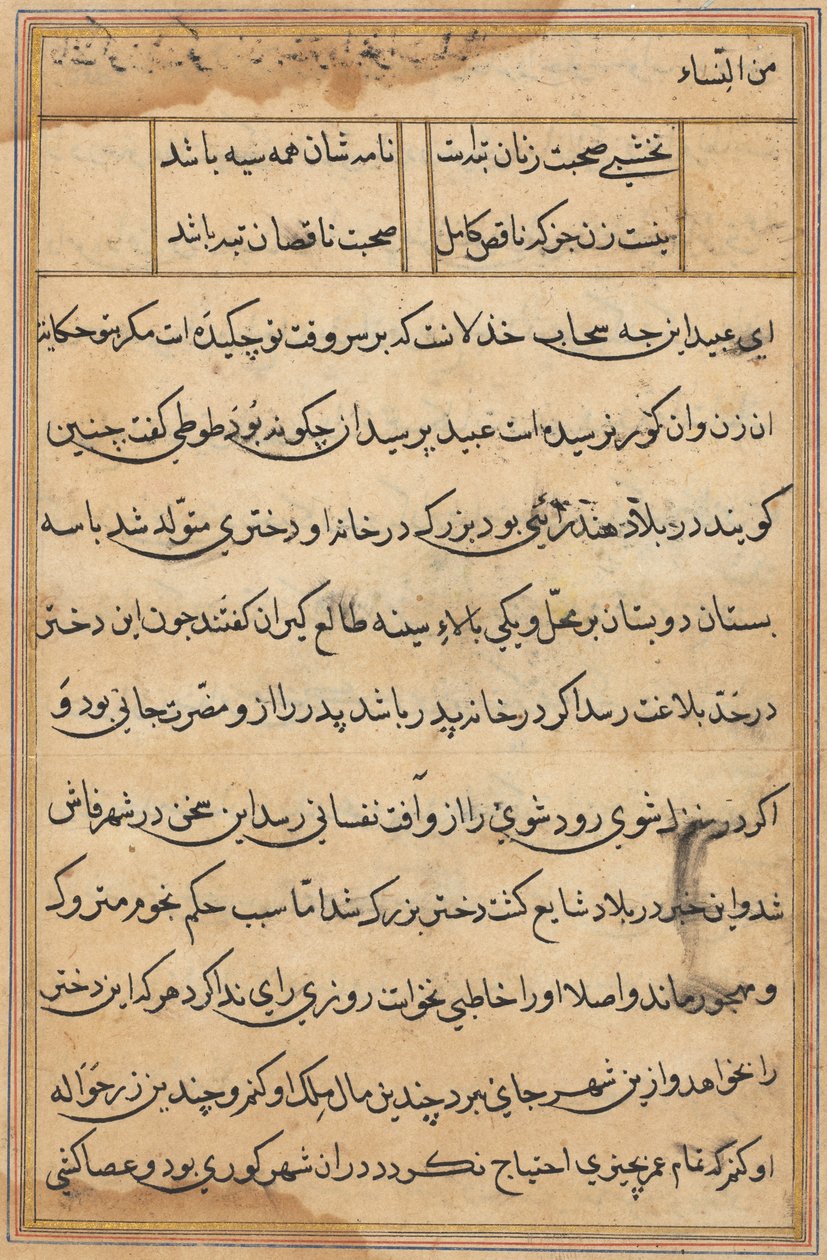 من النِّساء
نخشبی صحبت زنان تبه است
نامه شان همه سیه باشد
نیست زن جز که ناقص کامل
صحبت ناقصان تبه باشد
ای عبید این چه سحاب خذلانست که بر سر وقت تو چکیده است مکر بتو حکایت
ان زن وان کور نرسیده است عبید پرسید ان چکونه بُودَ طوطی کفت چنین
کویند در بلاد هند رائیی بود بزرک در خانه او دختری متوّلد شد با سه
بستان دو بستان بر محلّ و یکی بالاءِ سینه طالع کیران کفتند چون این دختر
در حَدّ بلاغت رسد اکر در خانه پدر باشد پدر را از و مضّرت جانی بود وَ
اکر در منزل شوی رود شوی را از و آفت نفسانی رسد این سخن در شهر فاش
شد و این خبر در بلاد شایع کشت دختر بزرک شد امّا سبب حکم نجوم متروک
و مهجور ماند و اصلا او را خاطبی نخواست روزی رای ندا کرد هر که این دختر
را بخواهد و ازین شهر جای ببرد چندین مال مِلک او کنم و چندین زر حَوَاله
او کنم که تمام عمر بچیزی احتیاج نکردد در ان شهر کوری بود و عصاکشی